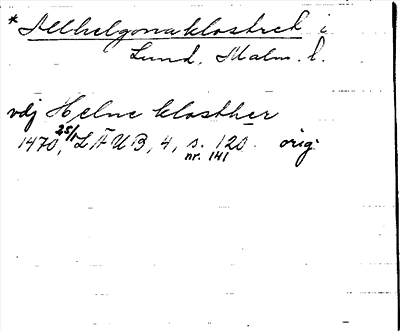 * Allhelgonaklostret i
Lund. Malm. l.
vdj Helne klosther
1470 25/1, LÄUB, 4, s. 120. orig.
nr. 141